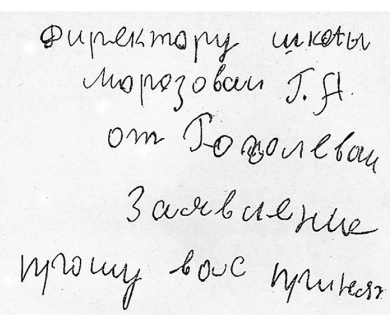 Директору школы
Морозовой Г.А.
от Гоголевой
Заявление
прошу вас принят